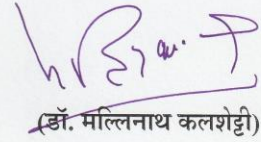 (डॉ. मल्लिनाथ कलशेट्टी)